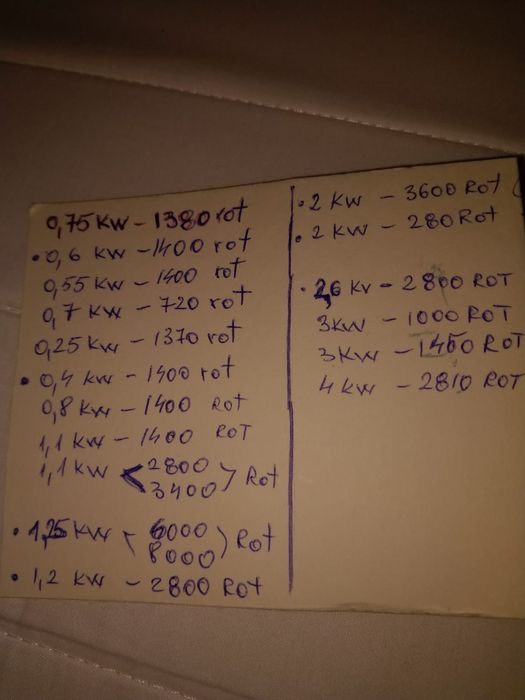 0,75 KW – 1380 rot
• 0,6 kw – 1400 rot
0,55 KW – 1400 rot
0,7 KW – 720 rot
0,25 KW – 1370 rot
• 0,4 kw – 1400 rot
0,8 KW – 1400 ROT
1,1 KW – 1400 ROT
1,1 KW < 2800
3400 > Rot
• 1,25 KW < 6000
8000 > Rot
• 1,2 KW – 2800 Rot
• 2 KW – 3600 ROT (
• 2 KW – 280 Rot
• 2,6 KV – 2800 ROT
3KW – 1000 ROT
3KW – 1450 ROT
4 KW – 2810 ROT